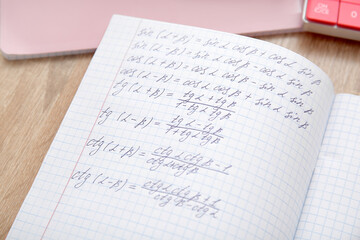 sin (α+β) = sin α cos β + cos α sin β
sin (α-β) = sin α cos β - cos α sin β
cos (α+β) = cos α cos β - sin α sin β
cos (α-β) = cos α cos β + sin α sin β
tg (α+β) = (tg α + tg β) / (1 - tg α tg β)
tg (α-β) = (tg α - tg β) / (1 + tg α tg β)
ctg (α+β) = ctg α ctg β - 1
ctg (α-β) = (ctg α ctg β + 1) / (ctg β - ctg α)